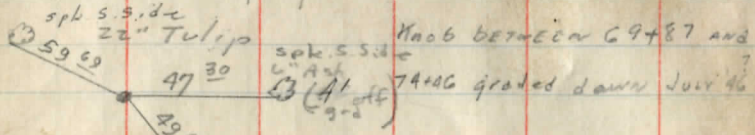 spk s.side
22" Tulip
59 69
47 30
spk s.side
6" Ash
(4' off
grd)
49
Knob between 69+87 and
74+46 graded down July 46